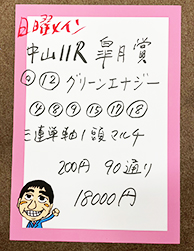 日曜メイン
中山11R 皐月賞
⑨ ⑫ グリーンエナジー
④ ⑧ ⑨ ⑮ ⑰ ⑱
三連単軸1頭マルチ
200円 90通り
18000円